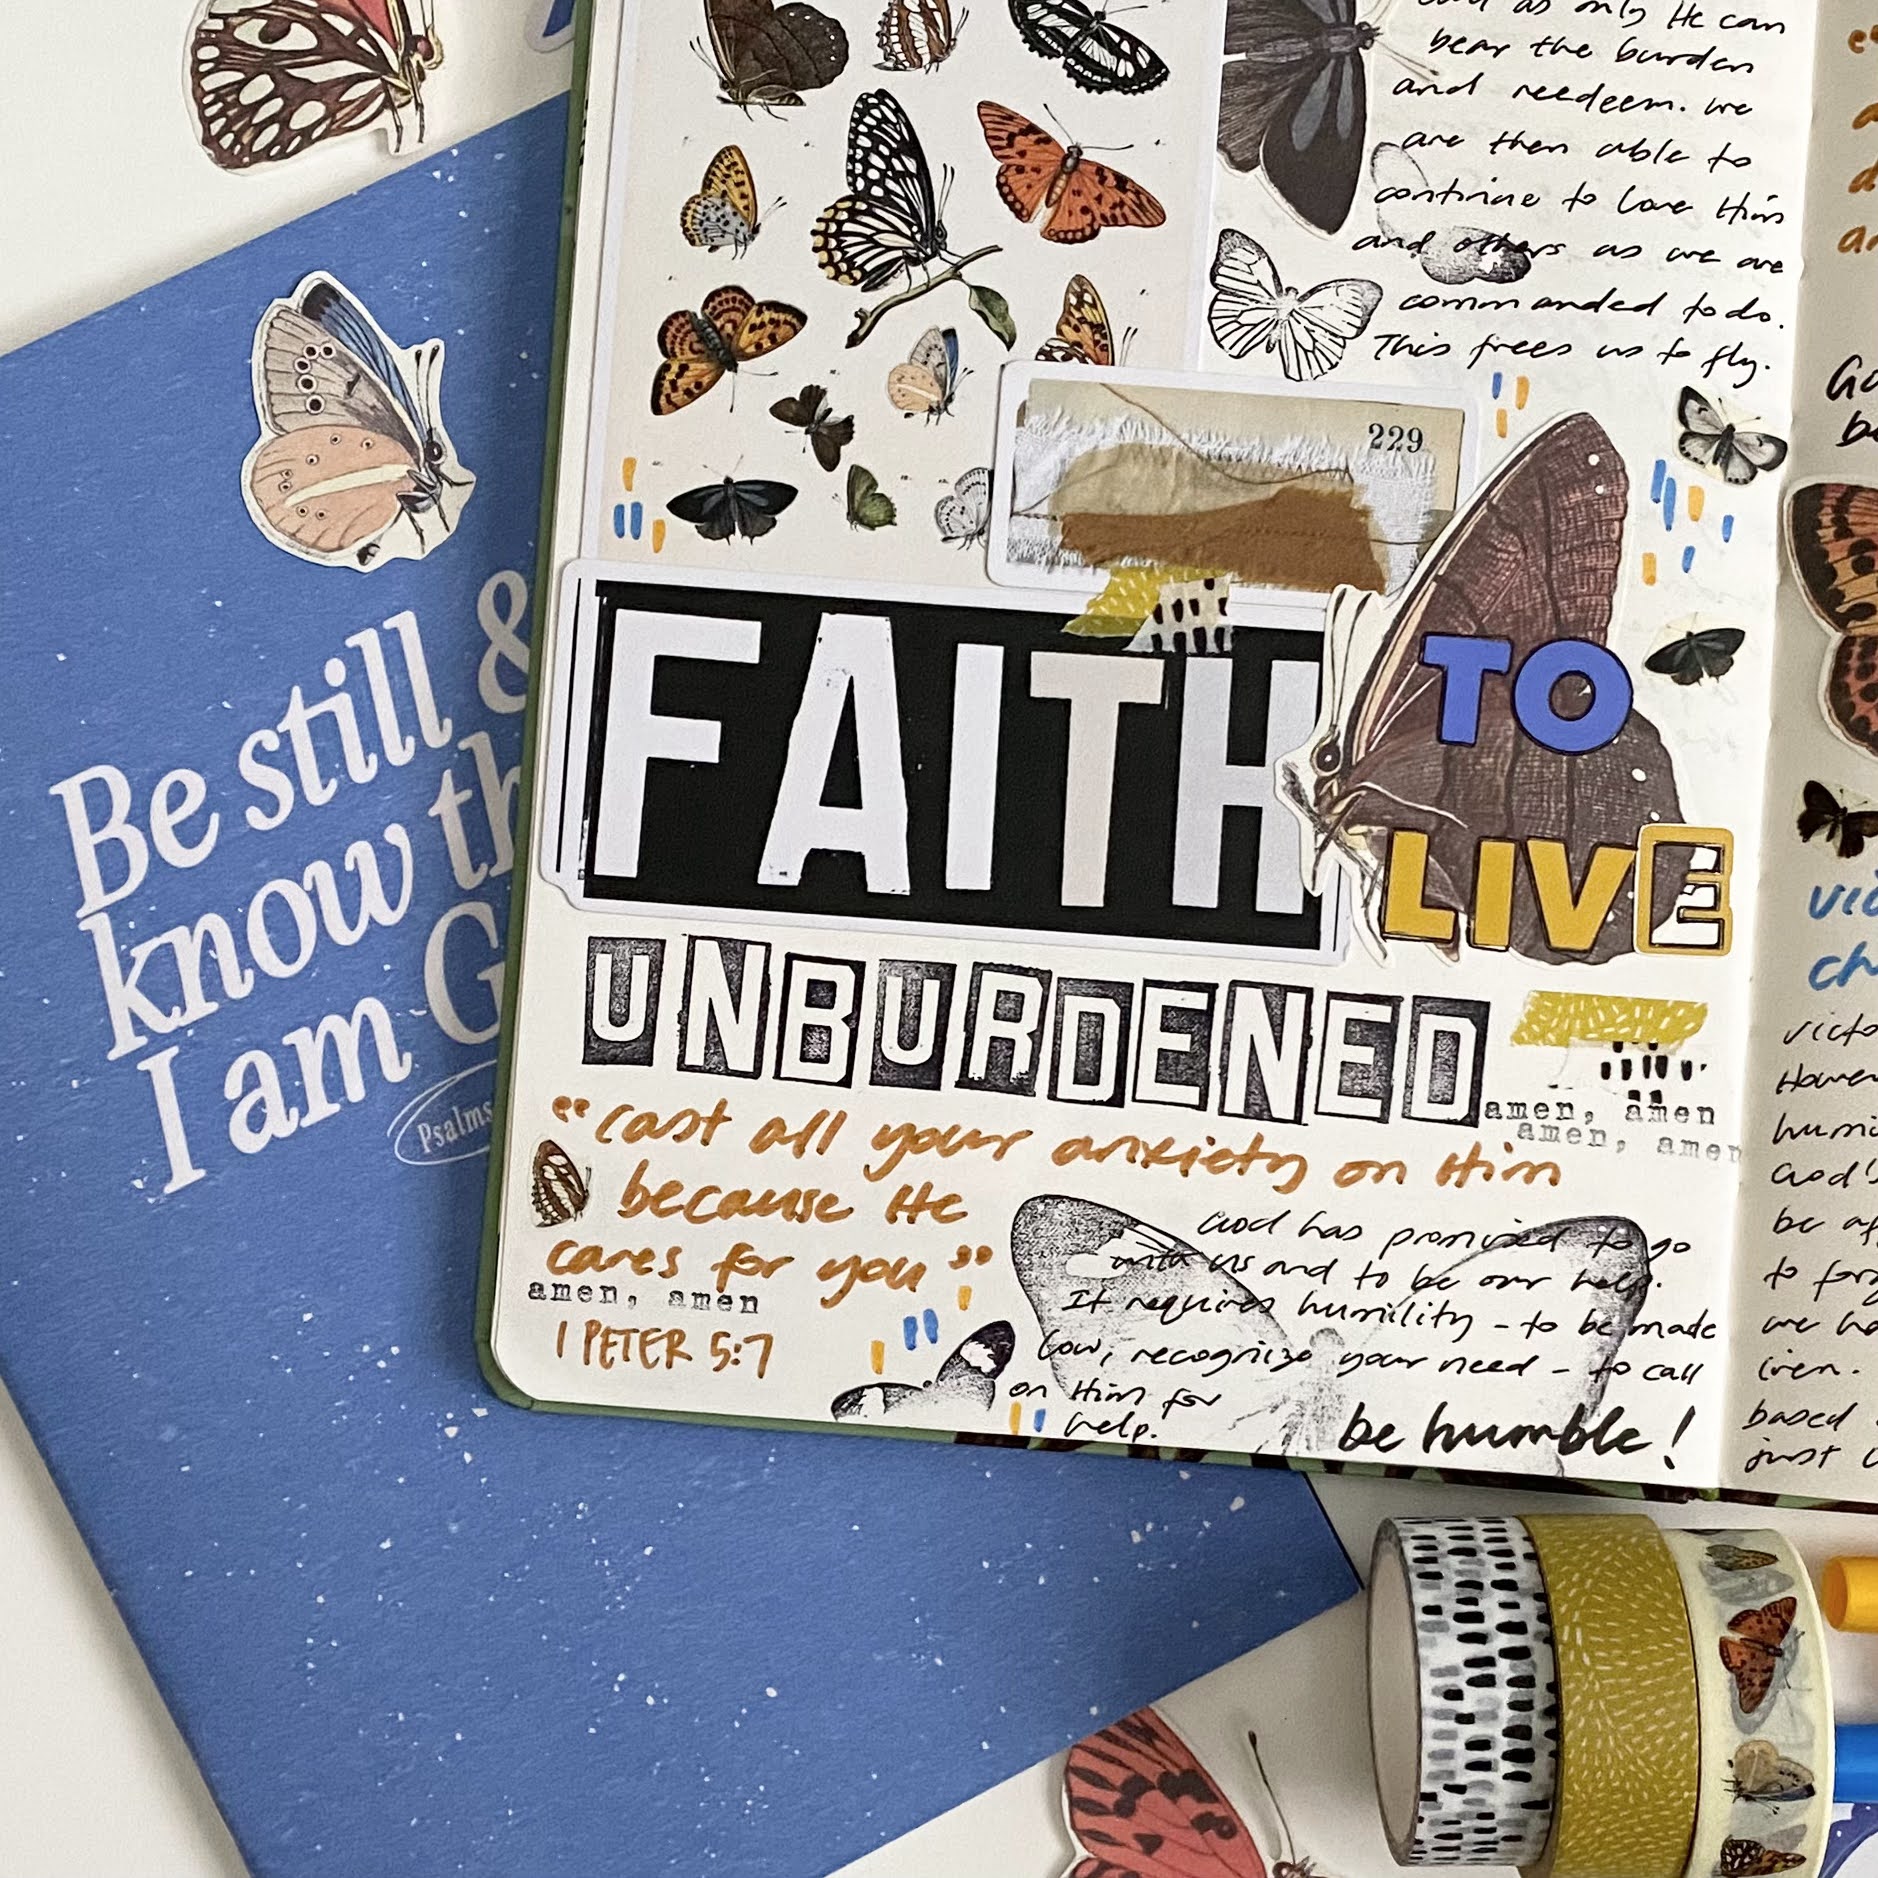 Be still &
know th
I am G
Psalms
as only He can
bear the burden
and reedeem. we
are then able to
continue to love Him
and others as we are
commanded to do.
This frees us to fly.
229
FAITH
TO
LIVE
UNBURDENED
amen, amen
amen, amen
"cast all your anxiety on Him
because He
cares for you"
amen, amen
1 PETER 5:7
God has promised to go
with us and to be our help.
It requires humility - to be made
low, recognize your need - to call
on Him for
help.
be humble!
vic
ch
victo
Howev
humi
God's
be
to forg
we ha
iven.
based
just